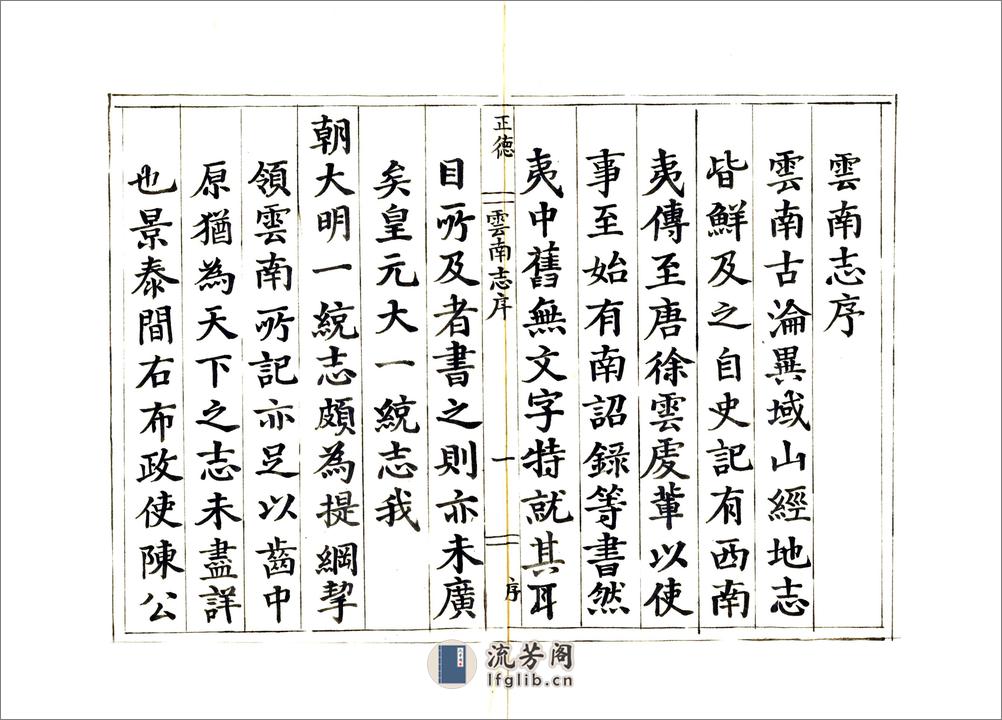 雲南志序
雲南古淪異域山經地志
皆鮮及之自史記有西南
夷傳至唐徐雲虔軰以使
事至始有南詔錄等書然
夷中舊無文字特就其耳
正德
雲南志序
一
序
目所及者書之則亦未廣
矣皇元大一統志我
朝大明一統志頗為提綱挈
領雲南所記亦足以齒中
原猶為天下之志未盡詳
也景泰間右布政使陳公
流芳阁
lfglib.cn